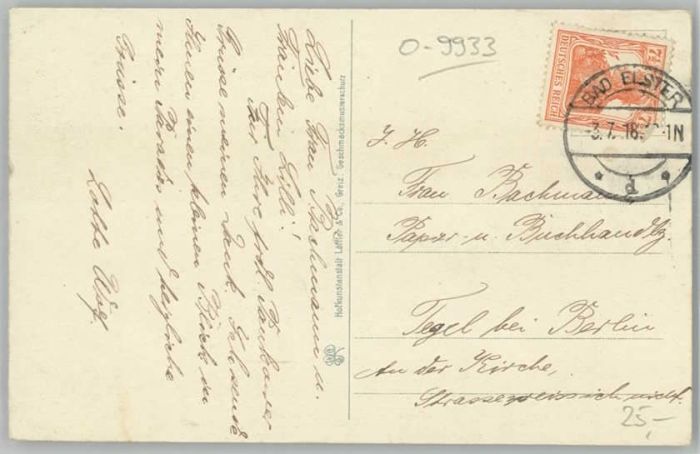 Liebe Frau Bachmann u.
Fräulein Lilli!
Für Ihre frdl.
Grüsse meinen Dank. Sende
Ihnen einen kleinen Blick in
mein Paradies und herzliche
Grüsse.
Lotte
Hofkunstanstalt Löffler & Co., Greiz. Geschmacksmusterschutz
O-9933
7½
DEUTSCHES REICH
BAD ELSTER
-3.7.18. -1N
d
J. H.
Frau Bachmann
Papier- u. Buchhandlg.
Tegel bei Berlin
An der Kirche,
Strasse weiss ich nicht.
25,-